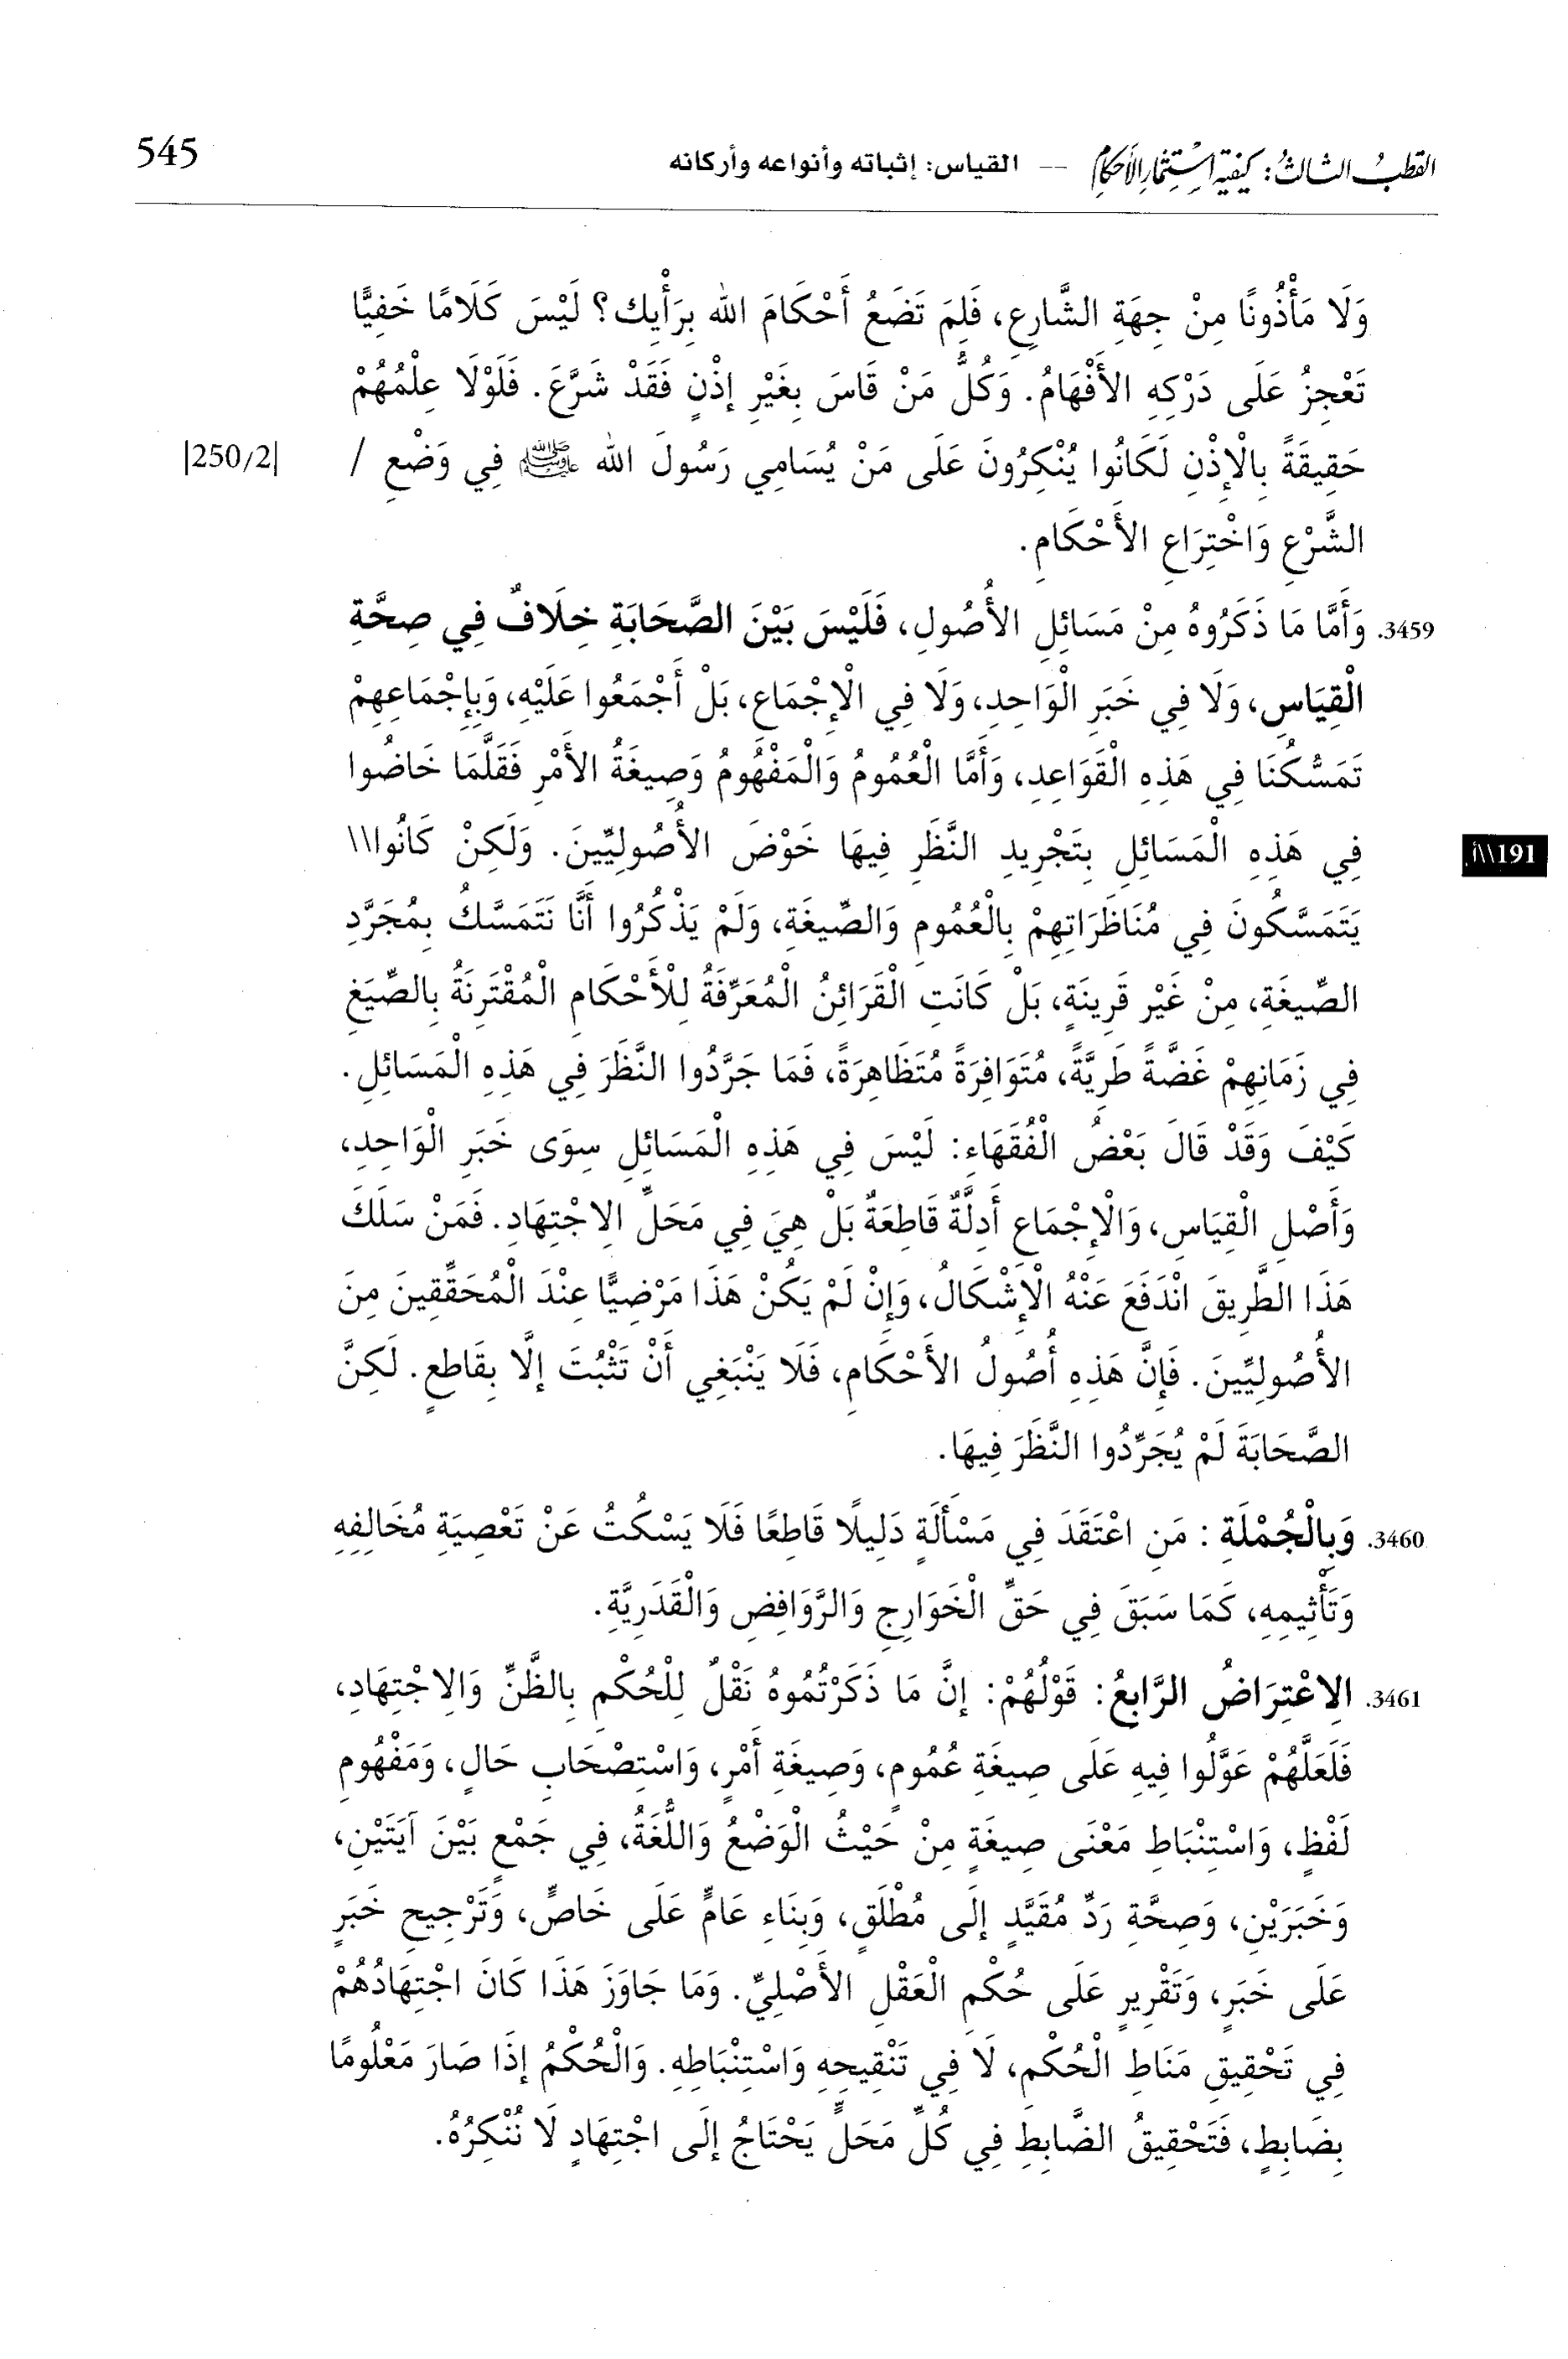 القطب الثالث: كيفية استثمار الأحكام -- القياس: إثباته وأنواعه وأركانه 545
وَلَا مَأْذُونًا مِنْ جِهَةِ الشَّارِعِ، فَلِمَ تَضَعُ أَحْكَامَ الله بِرَأْيِك؟ لَيْسَ كَلَامًا خَفِيًّا
تَعْجِزُ عَلَى دَرْكِهِ الأَفْهَامُ. وَكُلُّ مَنْ قَاسَ بِغَيْرِ إِذْنٍ فَقَدْ شَرَّعَ. فَلَوْلَا عِلْمُهُمْ
حَقِيقَةً بِالْإِذْنِ لَكَانُوا يُنْكِرُونَ عَلَى مَنْ يُسَامِي رَسُولَ الله ﷺ فِي وَضْعِ / |250/2|
الشَّرْعِ وَاخْتِرَاعِ الأَحْكَامِ.
3459. وَأَمَّا مَا ذَكَرُوهُ مِنْ مَسَائِلِ الأُصُولِ، فَلَيْسَ بَيْنَ الصَّحَابَةِ خِلَافٌ فِي صِحَّةِ
الْقِيَاسِ، وَلَا فِي خَبَرِ الْوَاحِدِ، وَلَا فِي الْإِجْمَاعِ، بَلْ أَجْمَعُوا عَلَيْهِ، وَبِإِجْمَاعِهِمْ
تَمَسُّكُنَا فِي هَذِهِ الْقَوَاعِدِ، وَأَمَّا الْعُمُومُ وَالْمَفْهُومُ وَصِيغَةُ الأَمْرِ فَقَلَّمَا خَاضُوا
فِي هَذِهِ الْمَسَائِلِ بِتَجْرِيدِ النَّظَرِ فِيهَا خَوْضَ الأُصُولِيِّينَ. وَلَكِنْ كَانُوا\\ 191\\أ.
يَتَمَسَّكُونَ فِي مُنَاظَرَاتِهِمْ بِالْعُمُومِ وَالصِّيغَةِ، وَلَمْ يَذْكُرُوا أَنَّا نَتَمَسَّكُ بِمُجَرَّدِ
الصِّيغَةِ، مِنْ غَيْرِ قَرِينَةٍ، بَلْ كَانَتِ الْقَرَائِنُ الْمُعَرِّفَةُ لِلْأَحْكَامِ الْمُقْتَرِنَةُ بِالصِّيَغِ
فِي زَمَانِهِمْ غَضَّةً طَرِيَّةً، مُتَوَافِرَةً مُتَظَاهِرَةً، فَمَا جَرَّدُوا النَّظَرَ فِي هَذِهِ الْمَسَائِلِ.
كَيْفَ وَقَدْ قَالَ بَعْضُ الْفُقَهَاءِ: لَيْسَ فِي هَذِهِ الْمَسَائِلِ سِوَى خَبَرِ الْوَاحِدِ،
وَأَصْلِ الْقِيَاسِ، وَالْإِجْمَاعِ أَدِلَّةٌ قَاطِعَةٌ بَلْ هِيَ فِي مَحَلِّ الِاجْتِهَادِ. فَمَنْ سَلَكَ
هَذَا الطَّرِيقَ انْدَفَعَ عَنْهُ الْإِشْكَالُ، وَإِنْ لَمْ يَكُنْ هَذَا مَرْضِيًّا عِنْدَ الْمُحَقِّقِينَ مِنَ
الأُصُولِيِّينَ. فَإِنَّ هَذِهِ أُصُولُ الأَحْكَامِ، فَلَا يَنْبَغِي أَنْ تَثْبُتَ إِلَّا بِقَاطِعٍ. لَكِنَّ
الصَّحَابَةَ لَمْ يُجَرِّدُوا النَّظَرَ فِيهَا.
3460. وَبِالْجُمْلَةِ : مَنِ اعْتَقَدَ فِي مَسْأَلَةٍ دَلِيلًا قَاطِعًا فَلَا يَسْكُتُ عَنْ تَعْصِيَةِ مُخَالِفِهِ
وَتَأْثِيمِهِ، كَمَا سَبَقَ فِي حَقِّ الْخَوَارِجِ وَالرَّوَافِضِ وَالْقَدَرِيَّةِ.
3461. الِاعْتِرَاضُ الرَّابِعُ: قَوْلُهُمْ: إِنَّ مَا ذَكَرْتُمُوهُ نَقْلٌ لِلْحُكْمِ بِالظَّنِّ وَالِاجْتِهَادِ،
فَلَعَلَّهُمْ عَوَّلُوا فِيهِ عَلَى صِيغَةِ عُمُومٍ، وَصِيغَةِ أَمْرٍ، وَاسْتِصْحَابِ حَالٍ، وَمَفْهُومِ
لَفْظٍ، وَاسْتِنْبَاطِ مَعْنَى صِيغَةٍ مِنْ حَيْثُ الْوَضْعُ وَاللُّغَةُ، فِي جَمْعٍ بَيْنَ آيَتَيْنِ،
وَخَبَرَيْنِ، وَصِحَّةِ رَدِّ مُقَيَّدٍ إِلَى مُطْلَقٍ، وَبِنَاءِ عَامٍّ عَلَى خَاصٍّ، وَتَرْجِيحِ خَبَرٍ
عَلَى خَبَرٍ، وَتَقْرِيرٍ عَلَى حُكْمِ الْعَقْلِ الأَصْلِيِّ. وَمَا جَاوَزَ هَذَا كَانَ اجْتِهَادُهُمْ
فِي تَحْقِيقِ مَنَاطِ الْحُكْمِ، لَا فِي تَنْقِيحِهِ وَاسْتِنْبَاطِهِ. وَالْحُكْمُ إِذَا صَارَ مَعْلُومًا
بِضَابِطٍ، فَتَحْقِيقُ الضَّابِطِ فِي كُلِّ مَحَلٍّ يَحْتَاجُ إِلَى اجْتِهَادٍ لَا نُنْكِرُهُ.